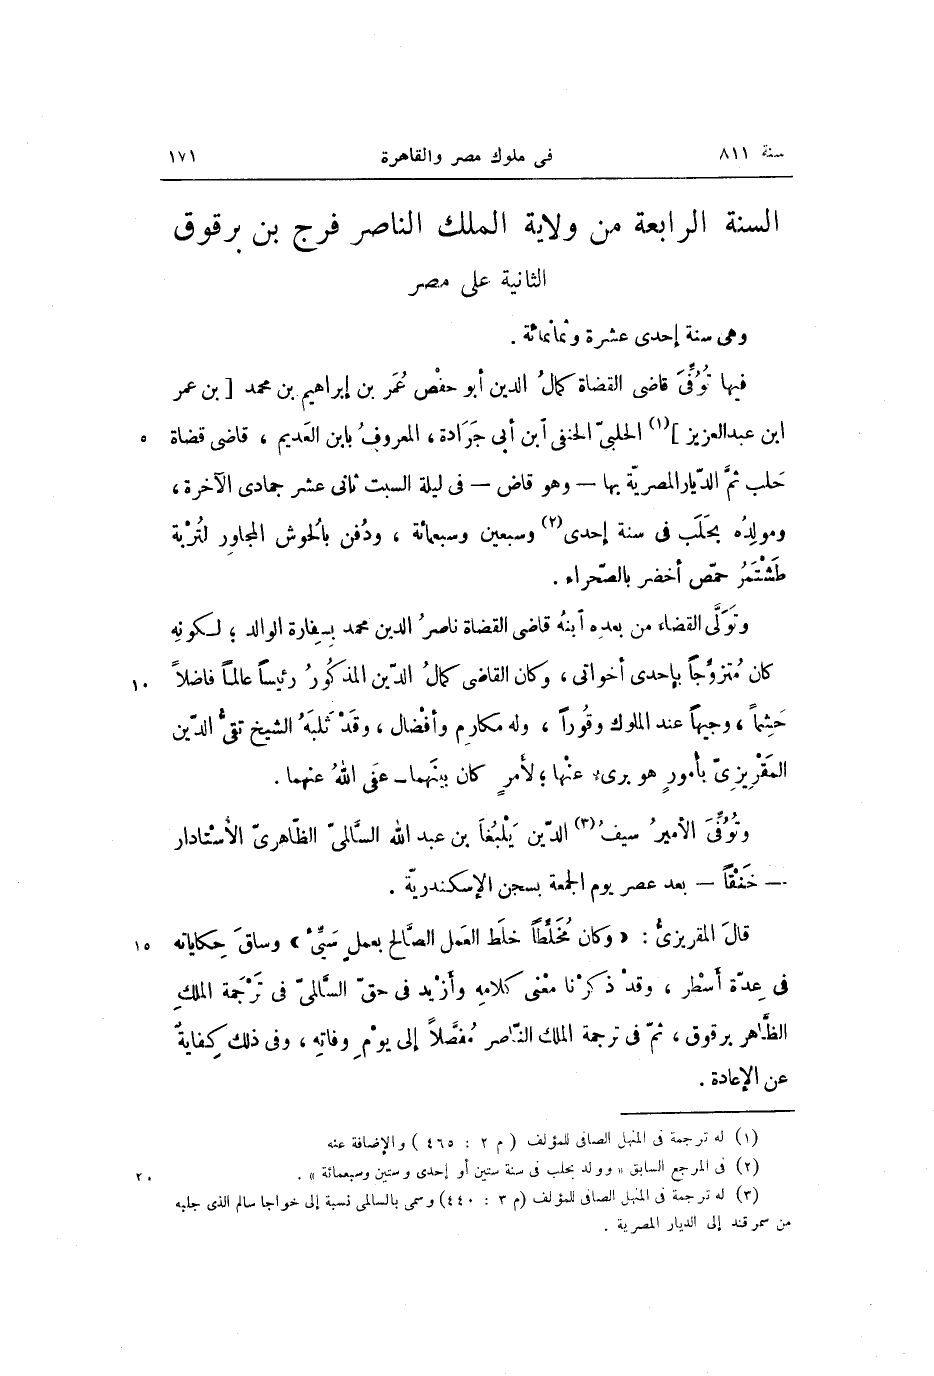 سنة ٨١١ فى ملوك مصر والقاهرة ١٧١
السنة الرابعة من ولاية الملك الناصر فرج بن برقوق
الثانية على مصر
وهى سنة إحدى عشرة وثمانمائة .
فيها تُوُفِّىَ قاضى القضاة كمالُ الدين أبو حفْص عُمَر بن إبراهيم بن محمد [ بن عمر
ابن عبدالعزيز ](١) الحلبىّ الحنفى آبن أبى جَرَادة ، المعروفُ بابن العَديم ، قاضى قضاة ٥
حَلب ثمَّ الدّيار المصريّة بها — وهو قاض — فى ليلة السبت ثانى عشر جمادى الآخرة ،
ومولِدُه بحَلَب فى سنة إحدى(٢) وسبعين وسبعمائة ، ودُفن بآلحوش المجاور لتُرْبة
طَشْتَمُر حمّص أخضر بالصّحراء .
وتَوَلَّى القضاء من بعده آبنُه قاضى القضاة ناصرُ الدين محمد بِسِفارة الوالد ؛ لـكونِه
كان مُتزوِّجاً بإحدى أخواتى ، وكان القاضى كمالُ الدّين المذكورُ رئيساً عالماً فاضلاً ١٠
حَشِماً ، وجيهاً عند الملوك وقُوراً ، وله مكارِم وأفْضال ، وقَدْ ثَلبَهُ الشيخ تقىُّ الدّين
المَقْرِيزِىّ بأُمورٍ هو برىء عنْها ؛ لأَمرٍ كان بينَهما ــ عفَى اللهُ عنهما .
وتُوُفِّىَ الأميرُ سيفُ(٣) الدّين يَلْبُغاَ بن عبد الله السَّالمىّ الظّاهرىّ الأُستادار
— خَنْقاً — بعد عصر يوم الجمعة بسجن الإسكندريّة .
قالَ المقريزىُّ : « وكان مُخَلِّطاً خلَط العَمل الصَّالح بعملٍ سَيِّئٍ » وساقَ حِكاياته ١٥
فى عِدّة أَسْطر ، وقدْ ذكرْنا معْنى كلامِه وأَزْيد فى حقّ السَّالمىّ فى تَرْجَمة الملكِ
الظَّاهر برقوق ، ثمّ فى ترجمة الملك النّاصر مُفصَّلاً إلى يومْ وفاتِه ، وفى ذلك كِفايةٌ
عن الإعادة .
(١) له ترجمة فى المنهل الصافى للمؤلف ( م ٢ : ٤٦٥ ) والإضافة عنه
(٢) فى المرجع السابق « وولد بحلب فى سنة ستين أو إحدى وستين وسبعمائة » . ٢٠
(٣) له ترجمة فى المنهل الصافى للمؤلف (م ٣ : ٤٤٠) وسمى بالسالمى نسبة إلى خواجا سالم الذى جلبه
من سمرقند إلى الديار المصرية .